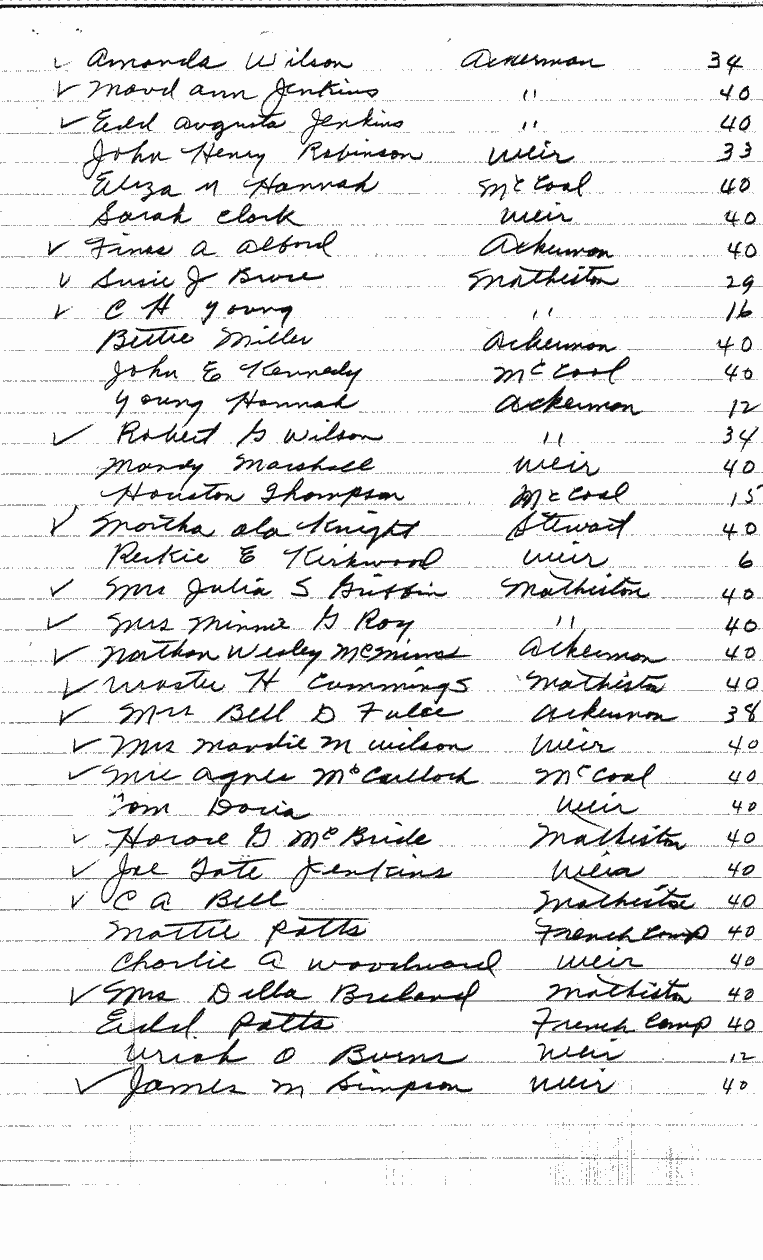 ✓ Amanda Wilson Ackerman 34
✓ Maud ann Jenkins " 40
✓ Edd Augusta Jenkins " 40
John Henry Robinson Weir 33
Eliza M Hannah McCool 40
Sarah Clark Weir 40
✓ Finas A Alford Ackerman 40
✓ Susie J Mathiston 29
✓ C H Young " 16
Bettie Miller Ackerman 40
John E Kennedy McCool 40
Young Hannah Ackerman 12
✓ Robert G Wilson " 34
Mandy Marshall Weir 40
Houston Thompson McCool 15
✓ Martha ola Knight Stewart 40
E Kirkwood Weir 6
✓ Mrs Julia S Griffin Mathiston 40
✓ Mrs Minnie G Roy " 40
✓ Nathan Wesley McMinns Ackerman 40
✓ H Cummings Mathiston 40
✓ Mrs Bell D Ackerman 38
✓ Mrs Maudie M Wilson Weir 40
✓ Mrs Agnes McCulloch McCool 40
Tom Weir 40
✓ Horace G McBride Mathiston 40
✓ Joe Tate Jenkins Weir 40
✓ C A Bell Mathiston 40
Mattie Potts French Camp 40
Charlie A Woodward Weir 40
✓ Mrs Della Breland Mathiston 40
Edd Potts French Camp 40
Uriah O Burns Weir 12
✓ James M Simpson Weir 40